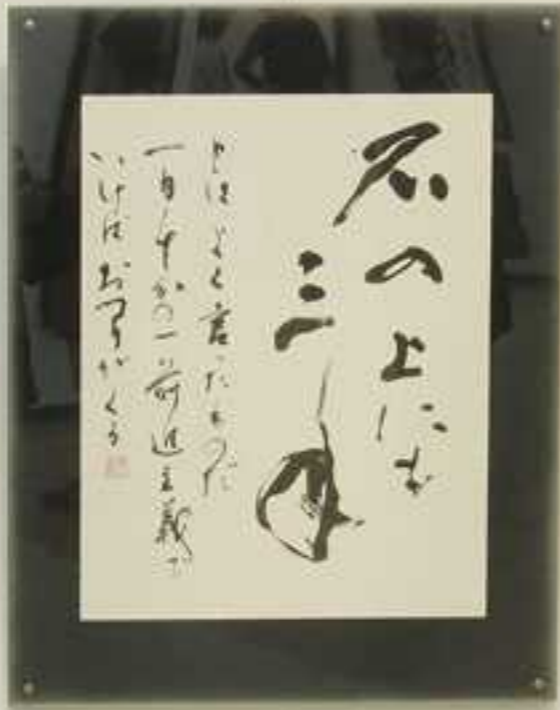 石の上にも
三年
とはよく言ったものだ
一日十分の一ミリ前進主義で
いけばおつりがくる